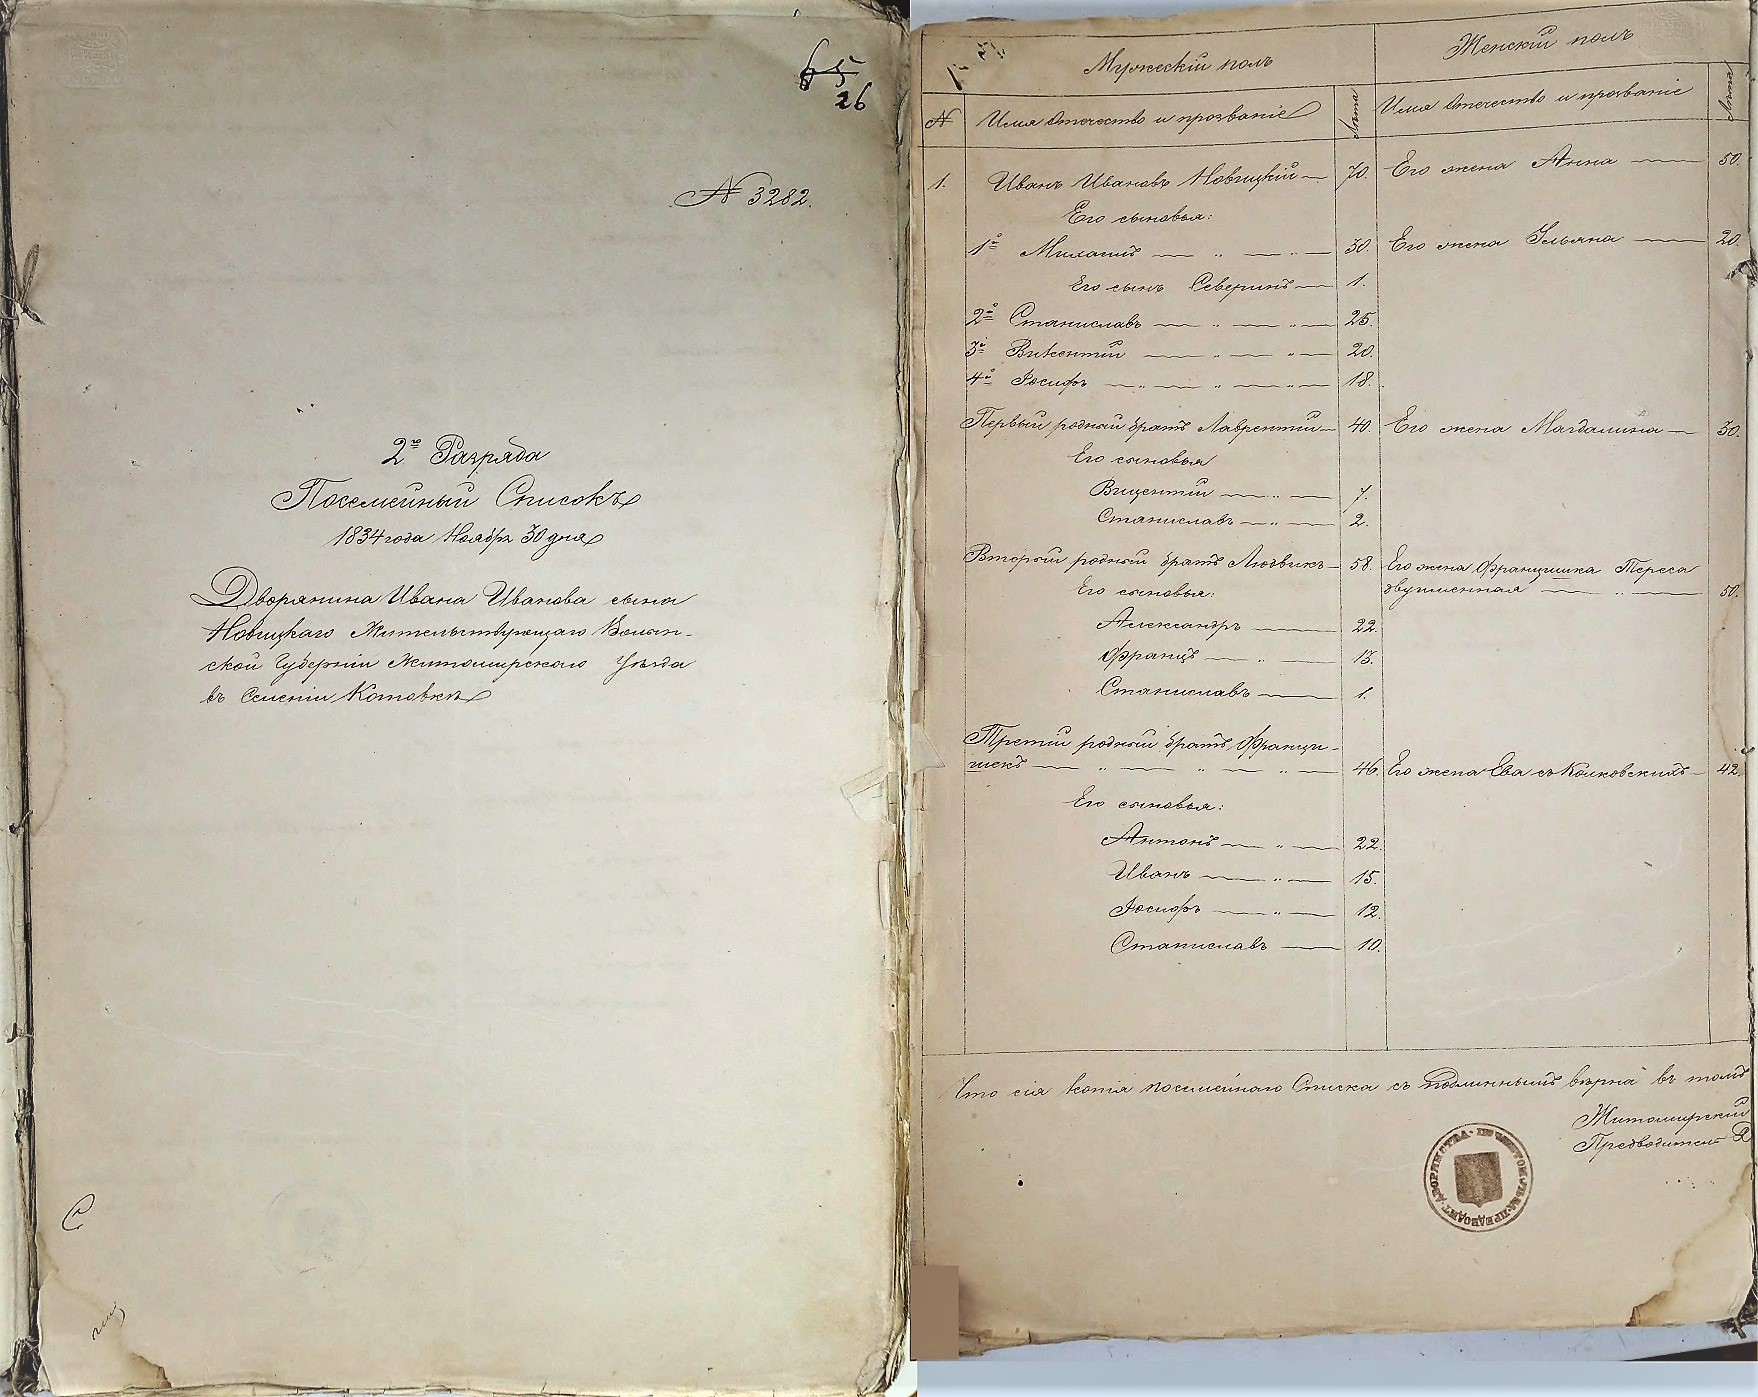 65
26
№ 3282.
2го Разряда
Посемейный Списокъ
1834 года Ноября 30 дня
Дворянина Ивана Иванова сына
Новицкаго Жительствующаго Волын-
ской Губерніи Житомирскаго Уѣзда
въ Селеніи Котовкѣ
Мужескій полъ
Женскій полъ
№
Имя Отечество и прозваніе
Лѣта
Имя Отечество и прозваніе
Лѣта
1. Иванъ Ивановъ Новицкій 70. Его жена Анна 50.
Его сыновья:
1й Михаилъ 30. Его жена Ульяна 20.
Его сынъ Северинъ 1.
2й Станиславъ 25.
3й Викентій 20.
4й Іосифъ 18.
Первый родный братъ Лаврентій 40. Его жена Магдалина 30.
Его сыновья
Вицентій 7.
Станиславъ 2.
Вторый родный братъ Людвикъ 58. Его жена Францишка Тереса
двуименная 50.
Его сыновья:
Александръ 22.
Францъ 13.
Станиславъ 1.
Третій родный братъ Франци-
шекъ 46. Его жена Ева съ Колковскихъ 42.
Его сыновья:
Антонъ 22.
Иванъ 15.
Іосифъ 12.
Станиславъ 10.
Что сія копія посемейнаго Списка съ подлиннымъ вѣрна въ томъ
Житомирскій
Предводитель Д